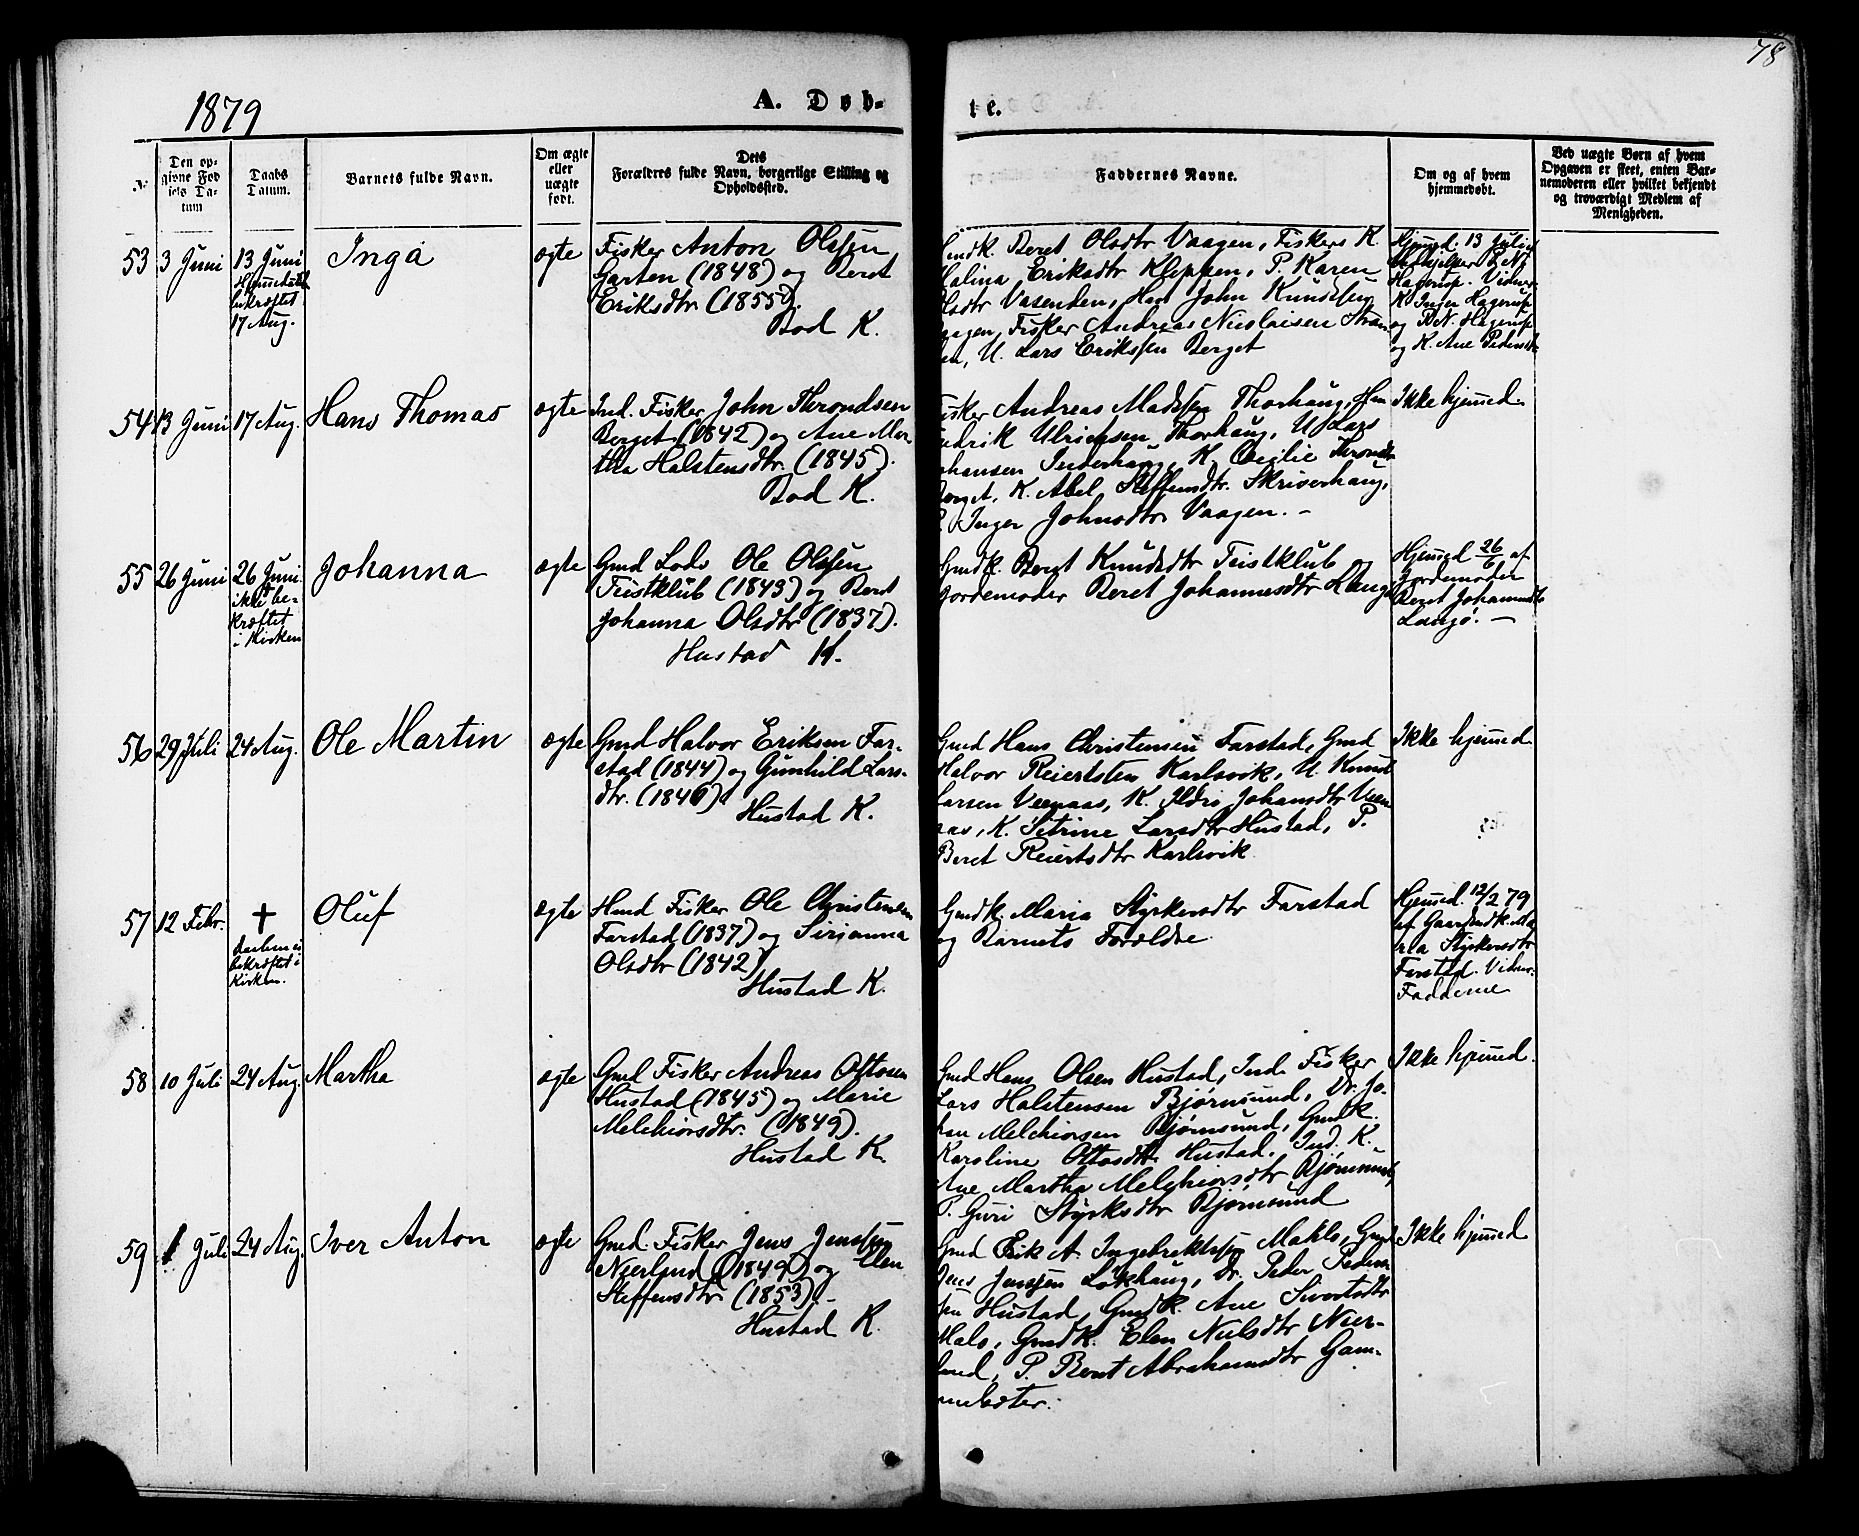 78
1879
A. Døb-
te.
No
Den op-
givne Fød
sels Da-
tum
Daabs
Datum.
Barnets fulde Navn.
Om ægte
eller
uægte
født.
Dets
Forældres fulde Navn, borgerlige Stilling og
Opholdssted.
Faddernes Navne.
Om og af hvem
hjemmedøbt.
Ved uægte Børn af hvem
Opgaven er skeet, enten Bar-
nemoderen eller hvilket bekjendt
og troværdigt Medlem af
Menigheden.
53
3 Juni
13 Juni
bekræftet
17 Aug.
Inga
ægte
Fisker Anton Olssen
Garten (1848) og Beret
Eriksdtr (1855).
Bod K.
Gmdk. Beret Olsdtr Vaagen, Fiskers K
Malina Eriksdtr Kleppen, P. Karen
Olsdtr Vasenden, John Knudssen
Vaagen, Fisker Andreas Nicolaisen Stran
den, U. Lars Erikssen Berget
Hjemd. 13 Juni
Hagerup. Vidner
K Inger Hagerup
og P.N. Hagerup
og K. Ane Pedersdtr
54
13 Juni
17 Aug.
Hans Thomas
ægte
Ind. Fisker John Throndsen
Berget (1842) og Ane Mar-
tha Halstensdtr. (1845).
Bod K.
Fisker Andreas Madssen Thorhaug,
Fredrik Ulrichsen Thorhaug, U. Lars
Johansen Inderhaug, K. Cecilie Thronds
Berget, K. Abel Steffensdtr. Skriverhaug,
P. Inger Johnsdtr Vaagen. –
Ikke hjemmed.
55
26 Juni
26 Juni
ikke be-
kræftet
i Kirken
Johanna
ægte
Gmd Lods Ole Olssen
Teistklub (1843) og Beret
Johanna Olsdtr (1837).
Hustad K.
Gmdk. Beret Knudsdtr Teistklub og
Jordemoder Beret Johannesdtr Langø
Hjemmed 26/6 af
Jordemoder
Beret Johannesdtr
Langø. –
56
29 Juli
24 Aug.
Ole Martin
ægte
Gmd Halvor Eriksen Far-
stad (1844) og Gunhild Lars-
dtr. (1846)
Hustad K.
Gmd Hans Christensen Farstad, Gmd
Halvor Reiertsten Karlsvik, U. Knud
Larsen Veenaas, K. Ildri Johansdtr Veen
aas, K. Petrine Larsdtr Hustad, P.
Beret Reiertsdtr Karlsvik
Ikke hjemmed.
57
12 Febr.
†
Daaben ei
bekræftet i
Kirken.
Oluf
ægte
Hmd Fisker Ole Christensen
Farstad (1837) og Serianna
Olsdtr (1842)
Hustad K.
Gmdk. Maria Styrkersdtr Farstad
og Barnets Forældre
Hjemmed. 12/2 79
af Gaardmdk. Ma
ria Styrkersdtr
Farstad. Vidner
Fadderne
58
10 Juli
24 Aug.
Martha
ægte
Gmd Fisker Andreas Ottosen
Hustad (1845) og Marie
Melchiorsdtr. (1849).
Hustad K.
Gmd Hans Olsen Hustad, Ind. Fisker
Lars Halstensen Bjørnsund, Dr. Jo-
han Melchiorsen Bjørnsund, Gmdk.
Karoline Ottosdtr Hustad, Ind. K.
Ane Martha Melchiorsdtr Bjørnsund,
P. Guri Styrksdtr Bjørnsund
Ikke hjemmed.
59
1 Juli
24 Aug.
Iver Anton
ægte
Gmd. Fisker Jens Jenssen
Nerlund (1849) og Elen
Steffensdtr (1853). –
Hustad K.
Gmd Erik A. Ingebrektssen Malo, Gmd
Jens Jenssen Løkhaug, Dr. Peder Peder
sen Hustad, Gmdk. Ane Sivertsdtr
Malo, Gmdk. Elen Nielsdtr Nier-
lund, P. Beret Abrahamsdtr Gam-
melsæter.
Ikke hjemmed